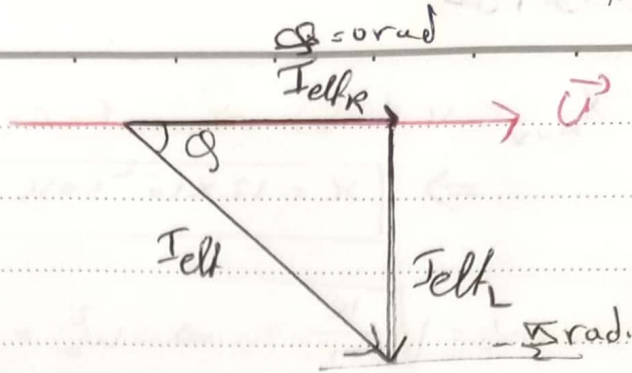 φ = 0 rad
Ieff_R
U⃗
φ
Ieff
Ieff_L
-π/2 rad.